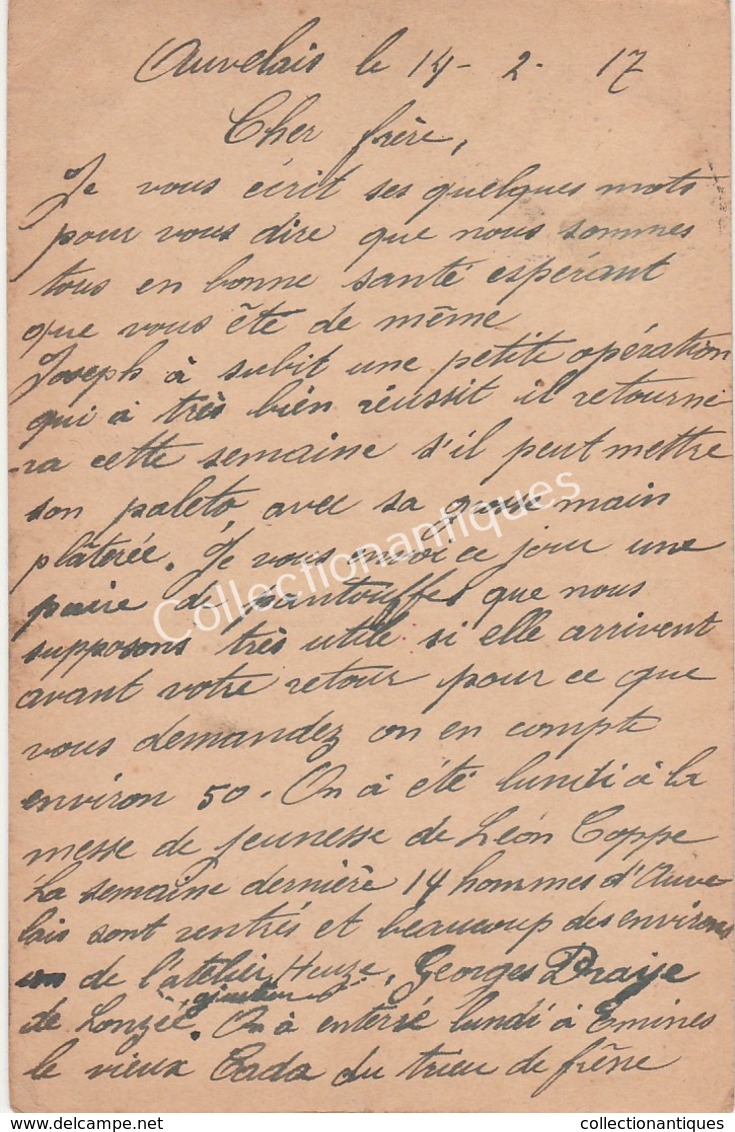 Auvelais le 14-2-17
Cher frère,
Je vous écrit ses quelques mots
pour vous dire que nous sommes
tous en bonne santé espérant
que vous ête de même
Joseph à subit une petite opération
qui à très bien réussit il retourne
-ra cette semaine s'il peut mettre
son paleto avec sa grosse main
plâtérée. Je vous envoi ce jour une
paire de pantouffes que nous
supposons très utile si elle arrivent
avant votre retour pour ce que
vous demandez on en compte
environ 50. On à été lundi à la
messe de jeunesse de Léon Coppe
La semaine dernière 14 hommes d'Auve
lais sont rentrés et beaucoup des environs
de l'atelier Heuze, Georges Draye
de Lonzée. On à enterré lundi à Emines
le vieux Cada du trieu de frêne
Collectionantiques
collectionantiques